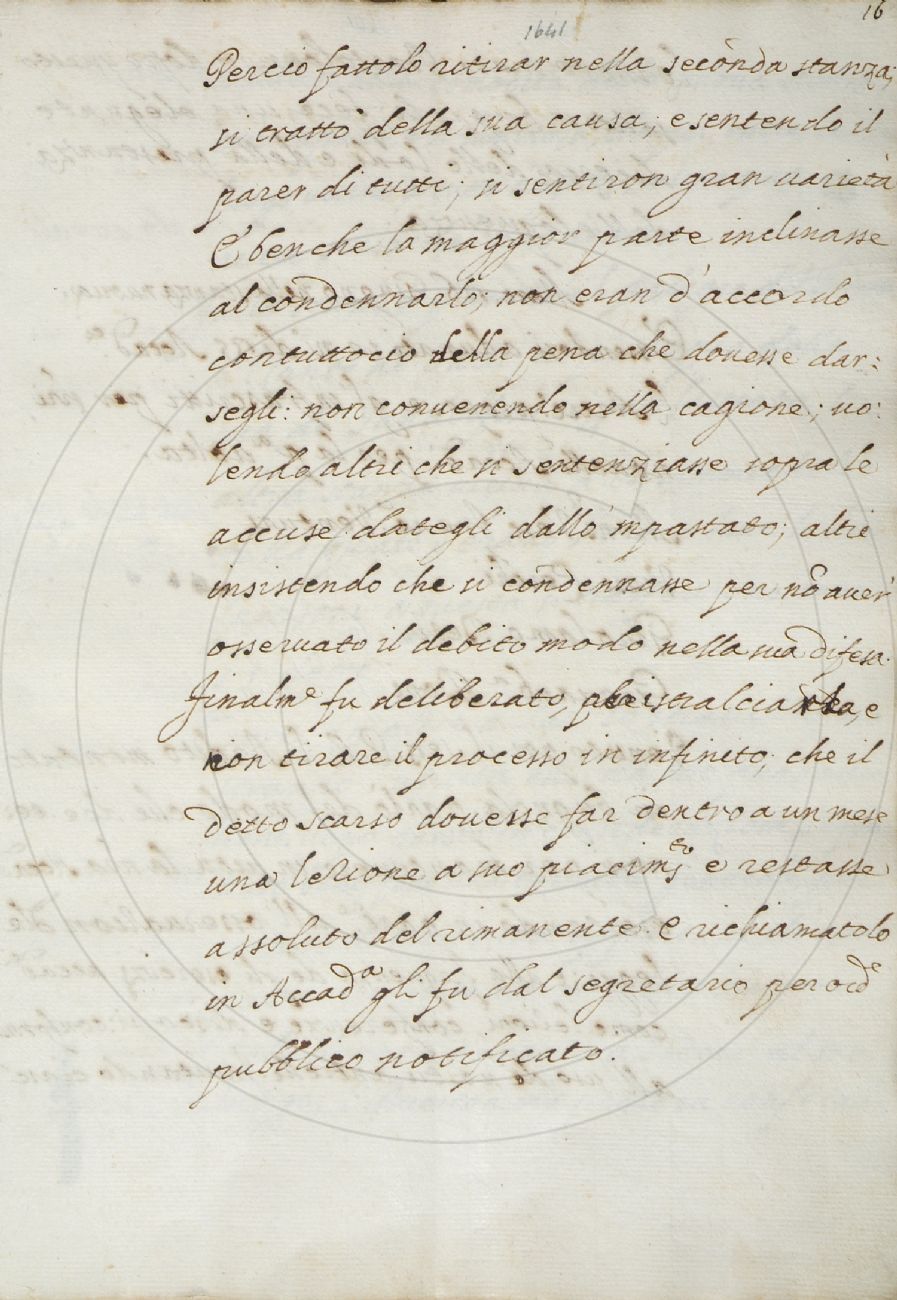 16
1641
Perciò fattolo ritirar nella seconda stanza;
si trattò della sua causa; e sentendo il
parer di tutti; si sentiron gran varietà
E' benche la maggior parte inclinasse
al condennarlo; non eran d'accordo
contuttociò della pena che dovesse dar:
segli: non convenendo nella cagione; vo:
lendo altri che si sentenziasse sopra le
accuse dategli dallo 'mpastato; altri
insistendo che si condennasse per nõ aver
osservato il debito modo nella sua difesa.
Finalm.e fu deliberato, e
non tirare il processo in infinito; che il
detto scarso dovesse far dentro a un mese
una lezione a suo piacim.to e restasse
assoluto del rimanente. E richiamatolo
in Accad.a gli fu dal segretario per ord.e
pubblico notificato.